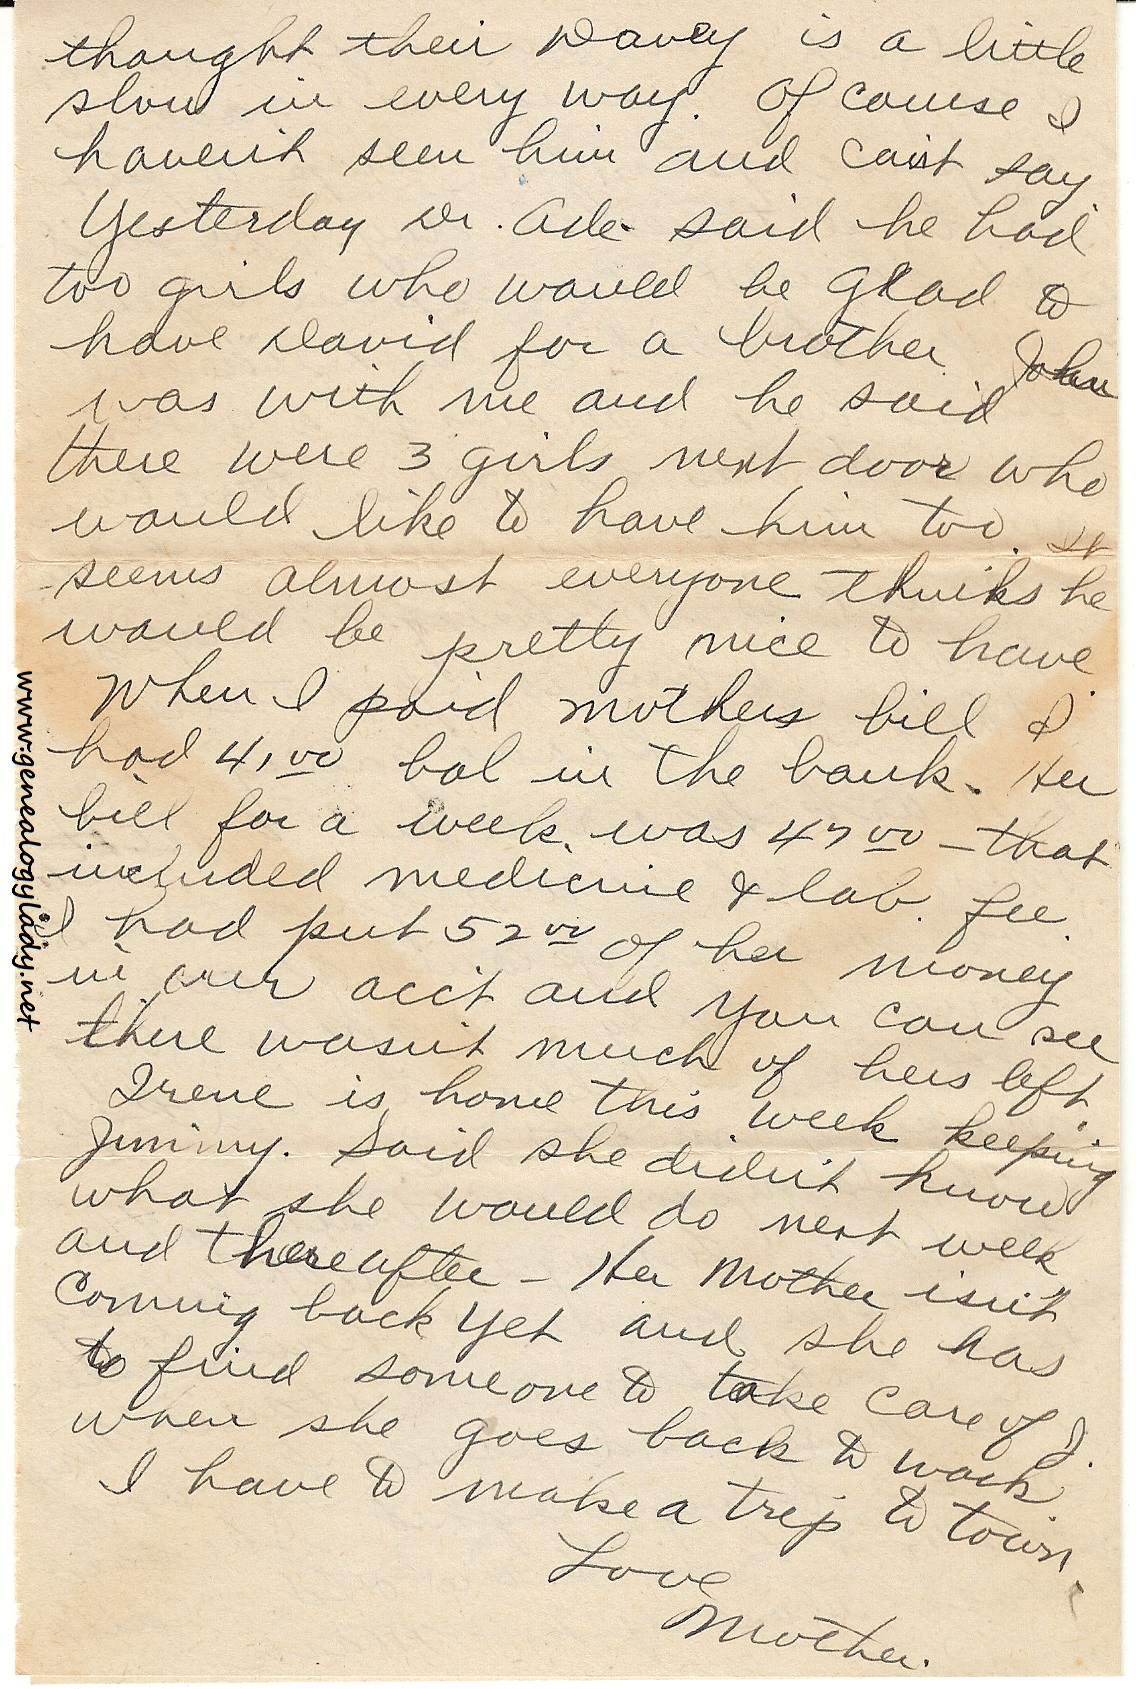 thought their Davey is a little
slow in every way. Of course I
haven't seen him and can't say
Yesterday Dr. Ade. said he had
two girls who would be glad to
have David for a brother. John
was with me and he said
there were 3 girls next door who
would like to have him too. It
seems almost everyone thinks he
would be pretty nice to have
When I paid mothers bill I
had 41 00 bal in the bank. Her
bill for a week was 47 00 - that
included medicine & lab. fee.
I had put 52 00 of her money
in our acc't and you can see
there wasn't much of hers left
Irene is home this week keeping
Jimmy. Said she didn't know
what she would do next week
and thereafter - Her Mother isn't
coming back yet and she has
to find someone to take care of J.
when she goes back to work
I have to make a trip to town.
Love
Mother.
www.genealogylady.net